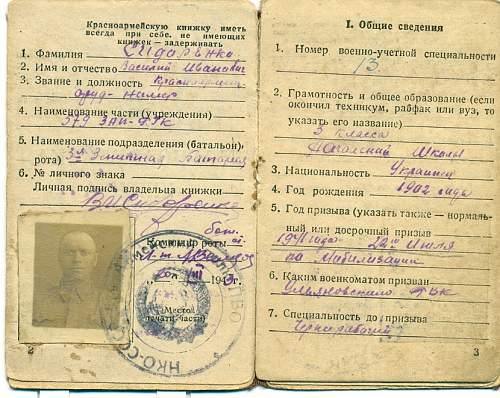 Красноармейскую книжку иметь
всегда при себе. не имеющих
книжек — задерживать
1. Фамилия Сидоренко
2. Имя и отчество Василий Иванович
3. Звание и должность Красноармеец
4. Наименование части (учреждения)
579 ЗАП
5. Наименование подразделения (батальон,
рота) 3я Зенитная батарея
6. № личного знака
Личная подпись владельца книжки
Командир роты
(Место
печати части)
2
I. Общие сведения
1. Номер военно-учетной специальности
13
2. Грамотность и общее образование (если
окончил техникум, рабфак или вуз, то
указать его название)
3 класса
Школы
3. Национальность Украинец
4. Год рождения 1902 года
5. Год призыва (указать также — нормаль-
ный или досрочный призыв
1941 года 22го Июля
по Мобилизации
6. Каким военкоматом призван
Ульяновского РВК
7. Специальность до призыва
Чернорабочий
3